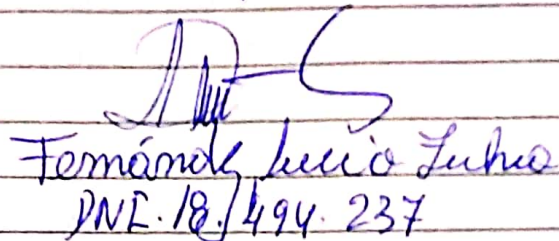 Fernández Lucio Julio
DNI. 18.494.237